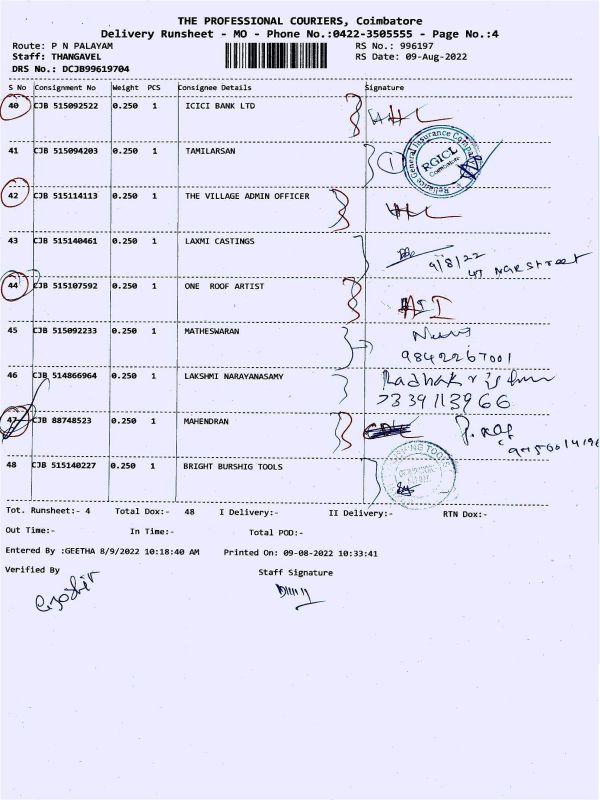 THE PROFESSIONAL COURIERS, Coimbatore
Delivery Runsheet - MO - Phone No.:0422-3505555 - Page No.:4
Route: P N PALAYAM RS No.: 996197
Staff: THANGAVEL RS Date: 09-Aug-2022
DRS No.: DCJB99619704
S No Consignment No Weight PCS Consignee Details Signature
40 CJB 515092522 0.250 1 ICICI BANK LTD
41 CJB 515094203 0.250 1 TAMILARSAN 1 Reliance General Insurance Company RGICL Coimbatore
42 CJB 515114113 0.250 1 THE VILLAGE ADMIN OFFICER
43 CJB 515140461 0.250 1 LAXMI CASTINGS 9/8/22
44 CJB 515107592 0.250 1 ONE ROOF ARTIST
45 CJB 515092233 0.250 1 MATHESWARAN
9842267001
46 CJB 514866964 0.250 1 LAKSHMI NARAYANASAMY Radhakrishnan
7339113966
47 CJB 88748523 0.250 1 MAHENDRAN
48 CJB 515140227 0.250 1 BRIGHT BURSHIG TOOLS
Tot. Runsheet:- 4 Total Dox:- 48 I Delivery:- II Delivery:- RTN Dox:-
Out Time:- In Time:- Total POD:-
Entered By :GEETHA 8/9/2022 10:18:40 AM Printed On: 09-08-2022 10:33:41
Verified By Staff Signature